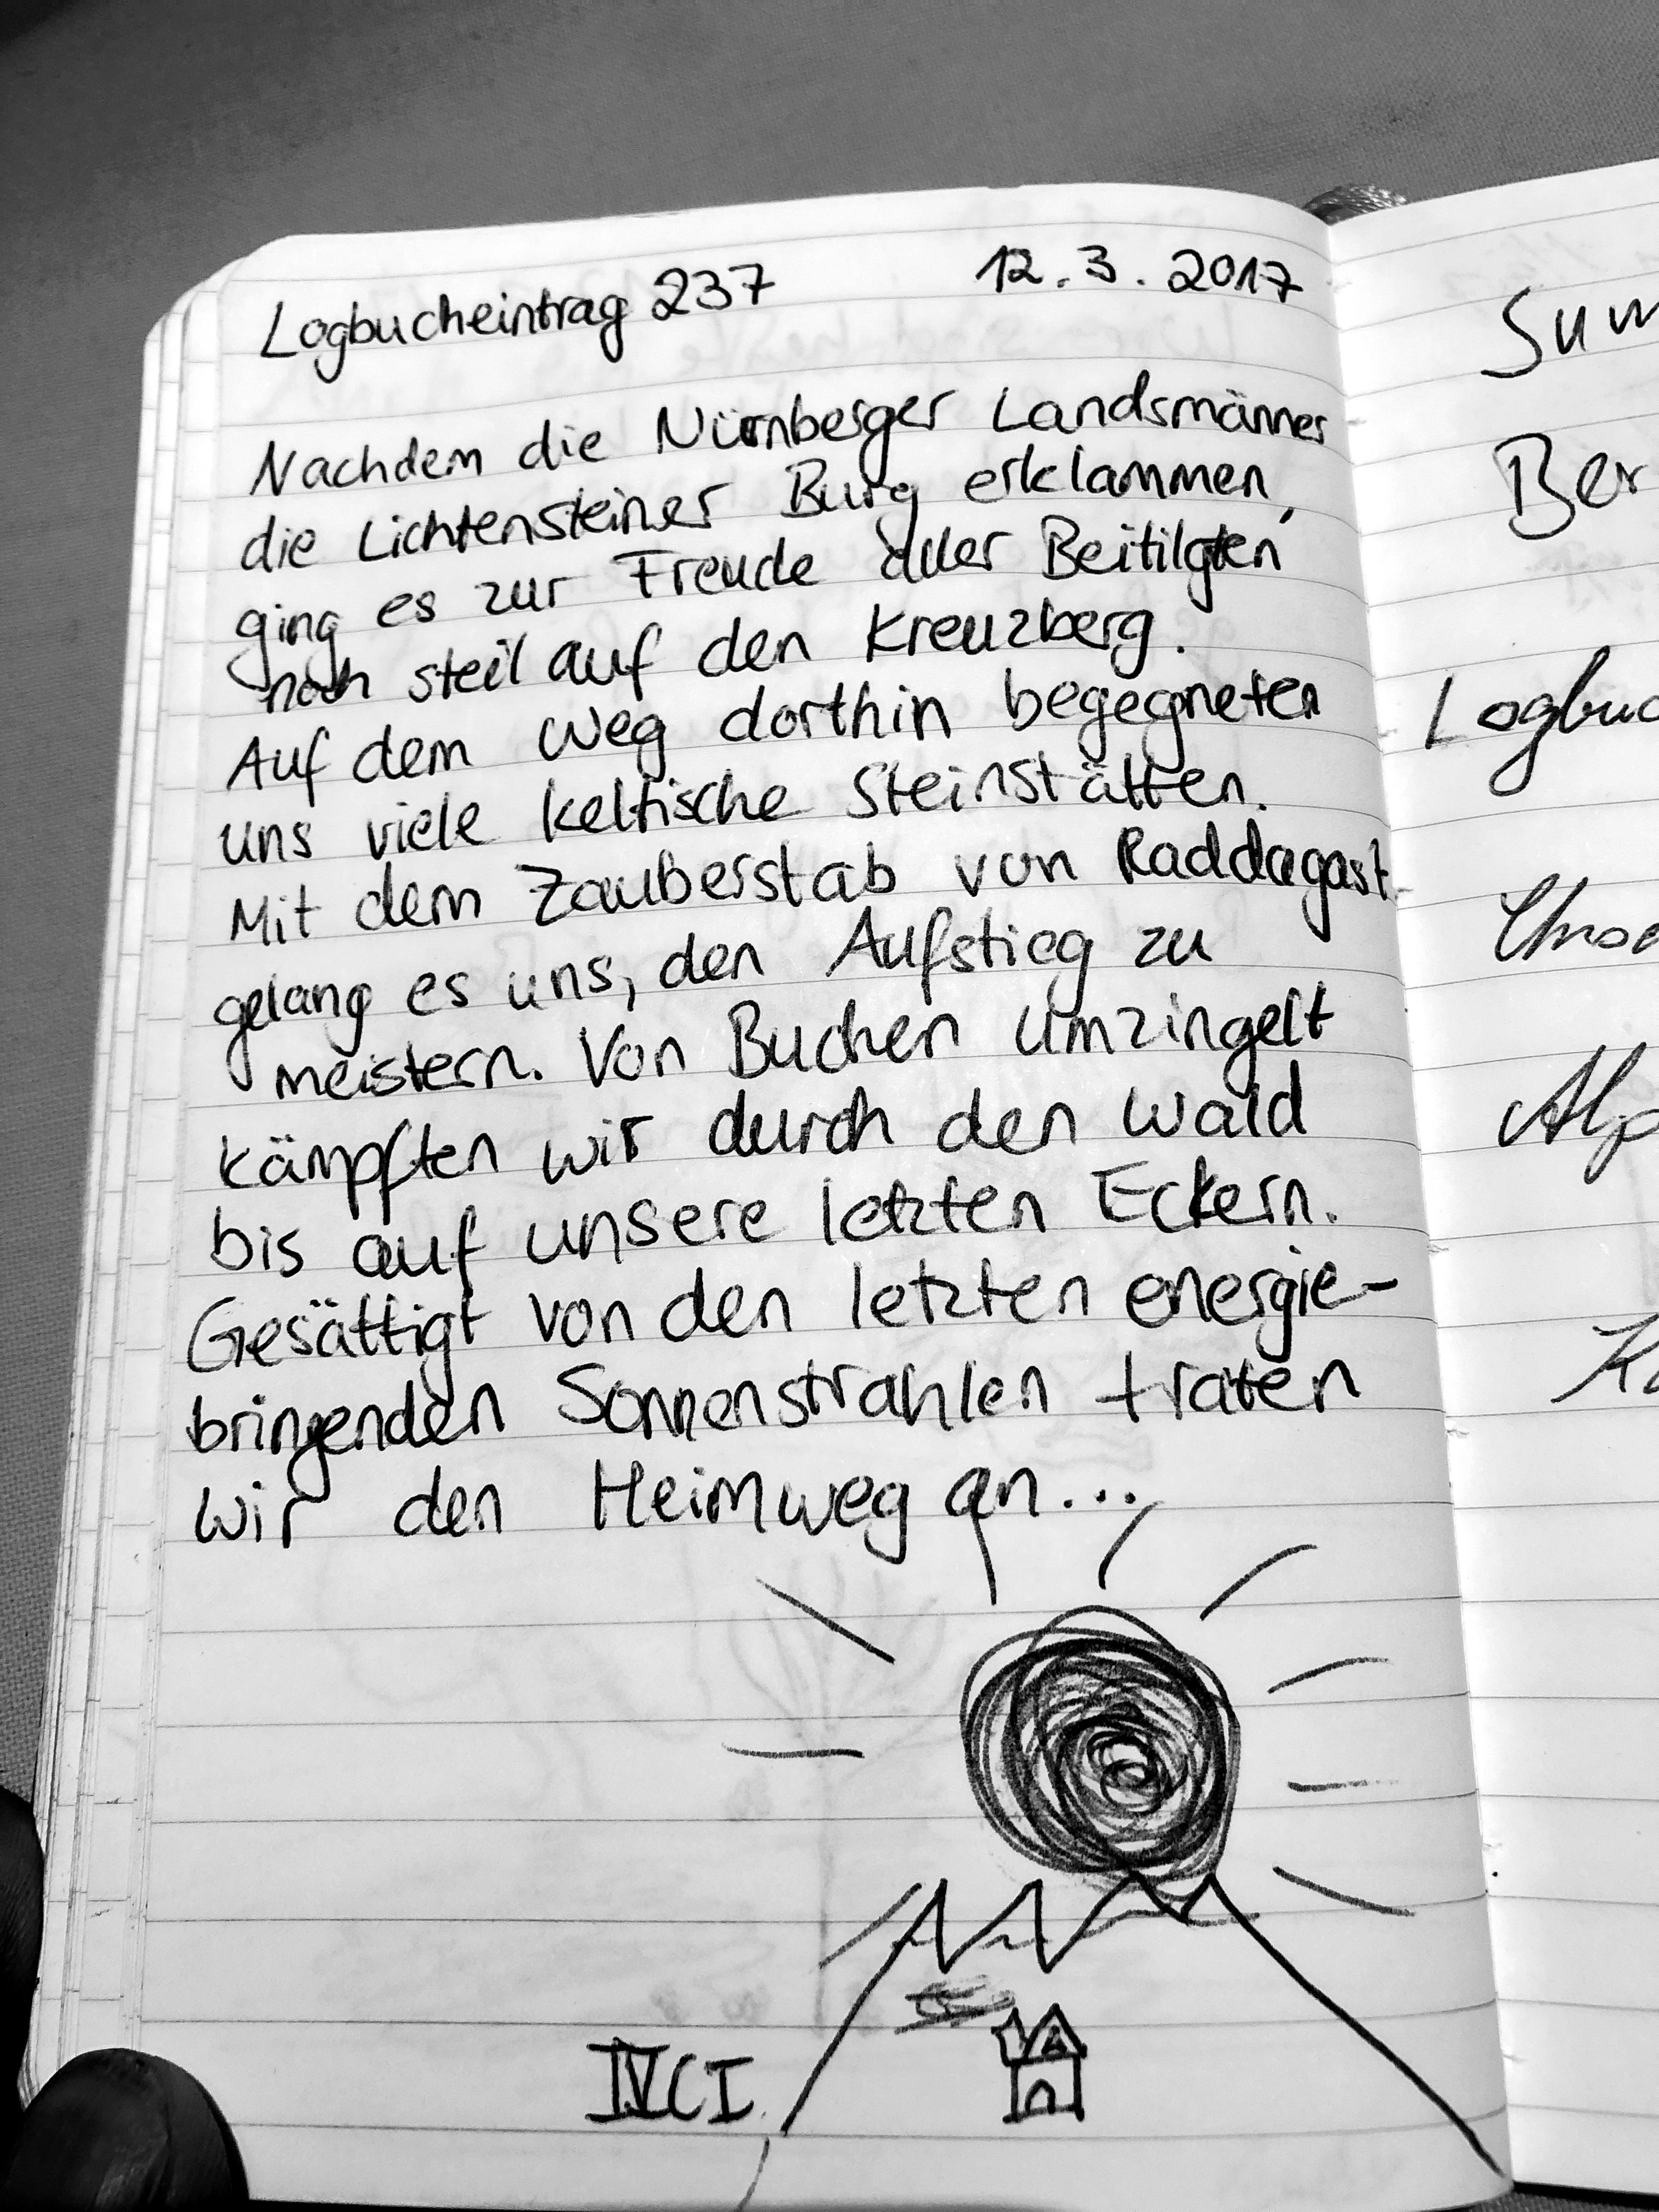 Logbucheintrag 237 12.3.2017
Nachdem die Nürnberger Landsmänner
die Lichtensteiner Burg erklammen,
ging es zur Freude aller Beitilgten
noch steil auf den Kreuzberg.
Auf dem Weg dorthin begegneten
uns viele keltische Steinstätten.
Mit dem Zauberstab von Raddagast
gelang es uns, den Aufstieg zu
meistern. Von Buchen umzingelt
kämpften wir durch den Wald
bis auf unsere letzten Eckern.
Gesättigt von den letzten energie-
bringenden Sonnenstrahlen traten
wir den Heimweg an...
IVCI
Sum
Ber
Logbuc
Alp